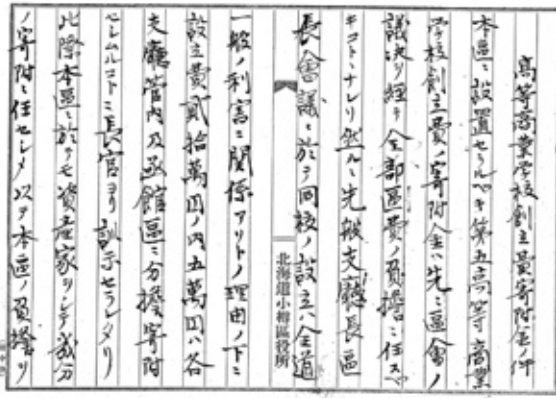 高等商業学校創立費寄附金ノ件
本區ニ設置セラルベキ第五高等商業
学校創立費ノ寄附金ハ先ニ區會ノ
議決ヲ経テ全部區費ノ負擔ニ任スベ
キコトトナレリ然ルニ先般支廳長區
長會議ニ於テ同校ノ設立ハ全道
北海道小樽區役所
一般ノ利害ニ関係アリトノ理由ノ下ニ
設立費貳拾萬円ノ内五萬円ハ各
支廳管内及函館區ニ分擔寄附
セシムルコトニ長官ヨリ訓示セラレタリ
此際本區ニ於テモ資産家ヲシテ幾分
ノ寄附ニ任セシメ以テ本區ノ負擔ヲ